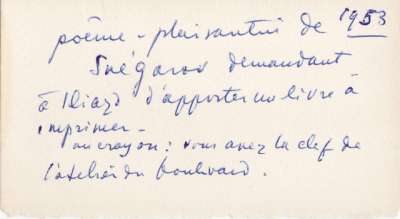 poème-plaisantin de 1953
Snégarov demandant
à Iliazd d'apporter un livre à
imprimer -
au crayon : vous avez la clef de
l'atelier du boulevard.